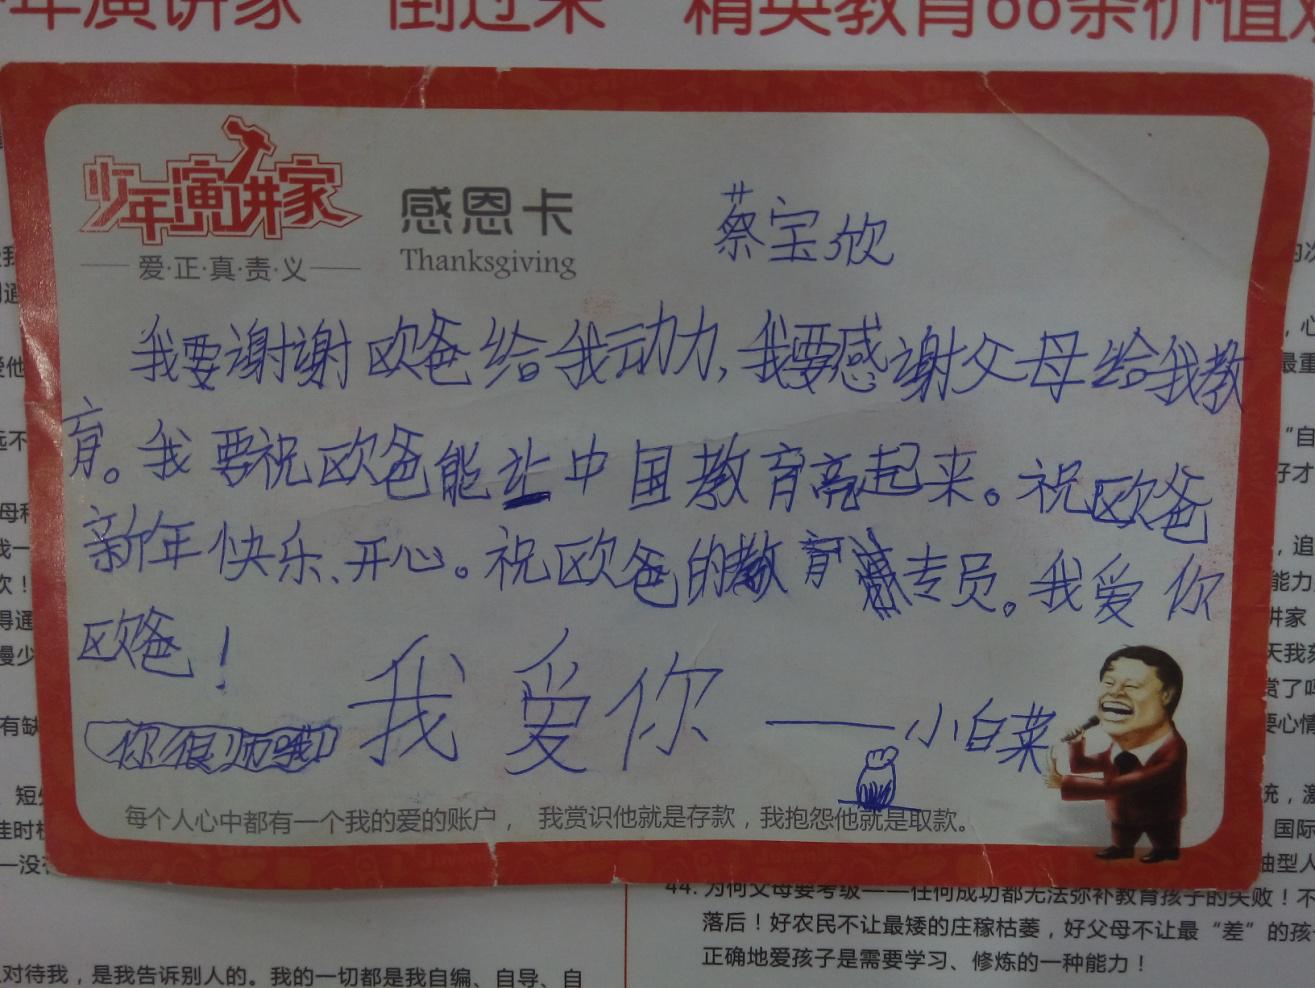 年演讲家 倒过来 精英教育66条价值观
少年演讲家
爱·正·真·责·义
感恩卡
Thanksgiving
蔡宝欣
我要谢谢欧爸给我动力,我要感谢父母给我教
育。我要祝欧爸能让中国教育亮起来。祝欧爸
新年快乐、开心。祝欧爸的教育专员。我爱你
欧爸!
你很帅哦
我爱你 ——小白菜
每个人心中都有一个我的爱的账户, 我赏识他就是存款,我抱怨他就是取款。
44. 为何父母要考级——任何成功都无法弥补教育孩子的失败!不
落后!好农民不让最矮的庄稼枯萎,好父母不让最“差”的孩
正确地爱孩子是需要学习、修炼的一种能力!
对待我,是我告诉别人的。我的一切都是我自编、自导、自